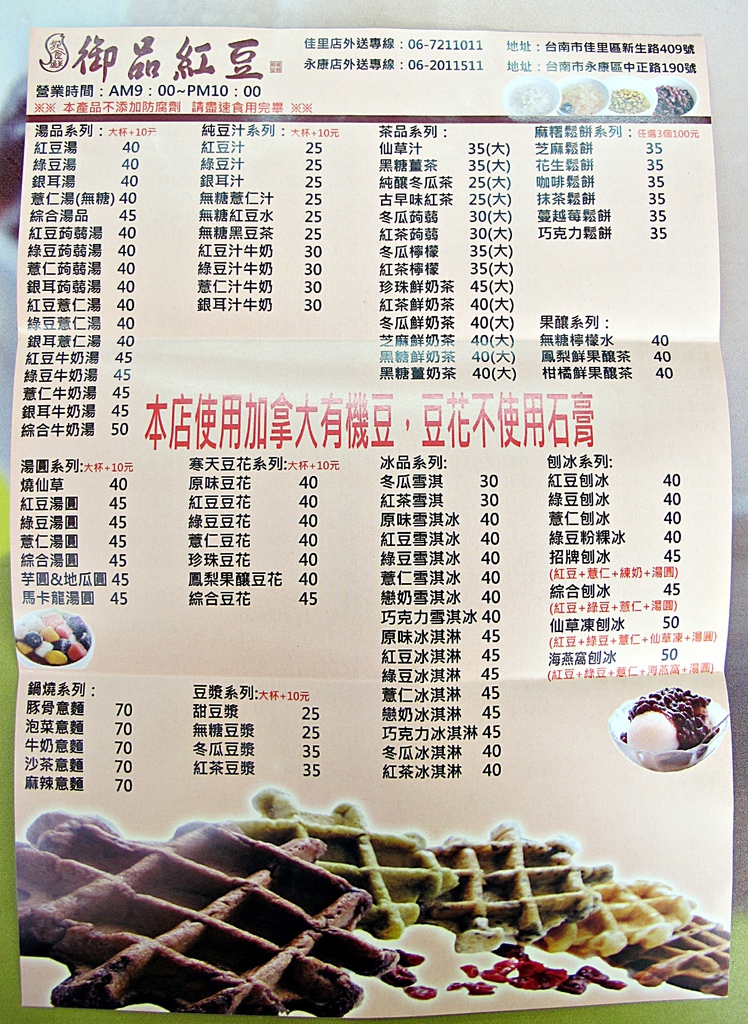 御品紅豆
佳里店外送專線：06-7211011
永康店外送專線：06-2011511
地址：台南市佳里區新生路409號
地址：台南市永康區中正路190號
營業時間：AM9：00~PM10：00
※※ 本產品不添加防腐劑 請盡速食用完畢 ※※
湯品系列：大杯+10元
紅豆湯 40
綠豆湯 40
銀耳湯 40
薏仁湯(無糖) 40
綜合湯品 45
紅豆蒟蒻湯 40
綠豆蒟蒻湯 40
薏仁蒟蒻湯 40
銀耳蒟蒻湯 40
紅豆薏仁湯 40
綠豆薏仁湯 40
銀耳薏仁湯 40
紅豆牛奶湯 45
綠豆牛奶湯 45
薏仁牛奶湯 45
銀耳牛奶湯 45
綜合牛奶湯 50
純豆汁系列：大杯+10元
紅豆汁 25
綠豆汁 25
銀耳汁 25
無糖薏仁汁 25
無糖紅豆水 25
無糖黑豆茶 25
紅豆汁牛奶 30
綠豆汁牛奶 30
銀耳汁牛奶 30
茶品系列：
仙草汁 35(大)
黑糖薑茶 35(大)
純釀冬瓜茶 25(大)
古早味紅茶 25(大)
冬瓜蒟蒻 30(大)
紅茶蒟蒻 30(大)
冬瓜檸檬 35(大)
紅茶檸檬 35(大)
珍珠鮮奶茶 45(大)
紅茶鮮奶茶 40(大)
冬瓜鮮奶茶 40(大)
芝麻鮮奶茶 40(大)
黑糖鮮奶茶 40(大)
黑糖薑奶茶 40(大)
麻糬鬆餅系列：任選3個100元
芝麻鬆餅 35
花生鬆餅 35
咖啡鬆餅 35
抹茶鬆餅 35
蔓越莓鬆餅 35
巧克力鬆餅 35
果釀系列：
無糖檸檬水 40
鳳梨鮮果釀茶 40
柑橘鮮果釀茶 40
本店使用加拿大有機豆，豆花不使用石膏
湯圓系列:大杯+10元
燒仙草 40
紅豆湯圓 45
綠豆湯圓 45
薏仁湯圓 45
綜合湯圓 45
芋圓&地瓜圓 45
馬卡龍湯圓 45
寒天豆花系列:大杯+10元
原味豆花 40
紅豆豆花 40
綠豆豆花 40
薏仁豆花 40
珍珠豆花 40
鳳梨果釀豆花 40
綜合豆花 45
冰品系列:
冬瓜雪淇 30
紅茶雪淇 30
原味雪淇冰 40
紅豆雪淇冰 40
綠豆雪淇冰 40
薏仁雪淇冰 40
戀奶雪淇冰 40
巧克力雪淇冰 40
原味冰淇淋 45
紅豆冰淇淋 45
綠豆冰淇淋 45
薏仁冰淇淋 45
戀奶冰淇淋 45
巧克力冰淇淋 45
冬瓜冰淇淋 40
紅茶冰淇淋 40
刨冰系列:
紅豆刨冰 40
綠豆刨冰 40
薏仁刨冰 40
綠豆粉粿冰 40
招牌刨冰 45
(紅豆+薏仁+練奶+湯圓)
綜合刨冰 45
(紅豆+綠豆+薏仁+湯圓)
仙草凍刨冰 50
(紅豆+綠豆+薏仁+仙草凍+湯圓)
海燕窩刨冰 50
(紅豆+綠豆+薏仁+海燕窩+湯圓)
鍋燒系列：
豚骨意麵 70
泡菜意麵 70
牛奶意麵 70
沙茶意麵 70
麻辣意麵 70
豆漿系列:大杯+10元
甜豆漿 25
無糖豆漿 25
冬瓜豆漿 35
紅茶豆漿 35